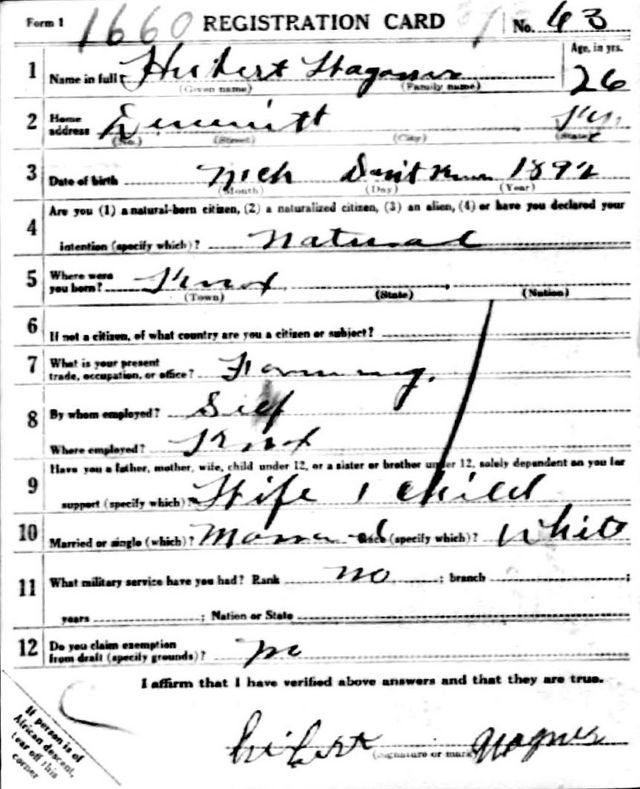 Form 1 1660 REGISTRATION CARD No. 43
1 Name in full Hubert Wagoner Age, in yrs. 26
(Given name) (Family name)
2 Home address
(No.) (Street) (City) (State)
3 Date of birth 1892
(Month) (Day) (Year)
4 Are you (1) a natural-born citizen, (2) a naturalized citizen, (3) an alien, (4) or have you declared your
intention (specify which)? Natural
5 Where were you born? Knox
(Town) (State) (Nation)
6 If not a citizen, of what country are you a citizen or subject?
7 What is your present trade, occupation, or office? Farming.
8 By whom employed? Self
Where employed? Knox
9 Have you a father, mother, wife, child under 12, or a sister or brother under 12, solely dependent on you for
support (specify which)? Wife 1 child
10 Married or single (which)? Race (specify which)? White
11 What military service have you had? Rank no ; branch ;
years ; Nation or State
12 Do you claim exemption from draft (specify grounds)? no
I affirm that I have verified above answers and that they are true.
Hubert Wagner
(Signature or mark)
If person is of
African descent,
tear off this
corner